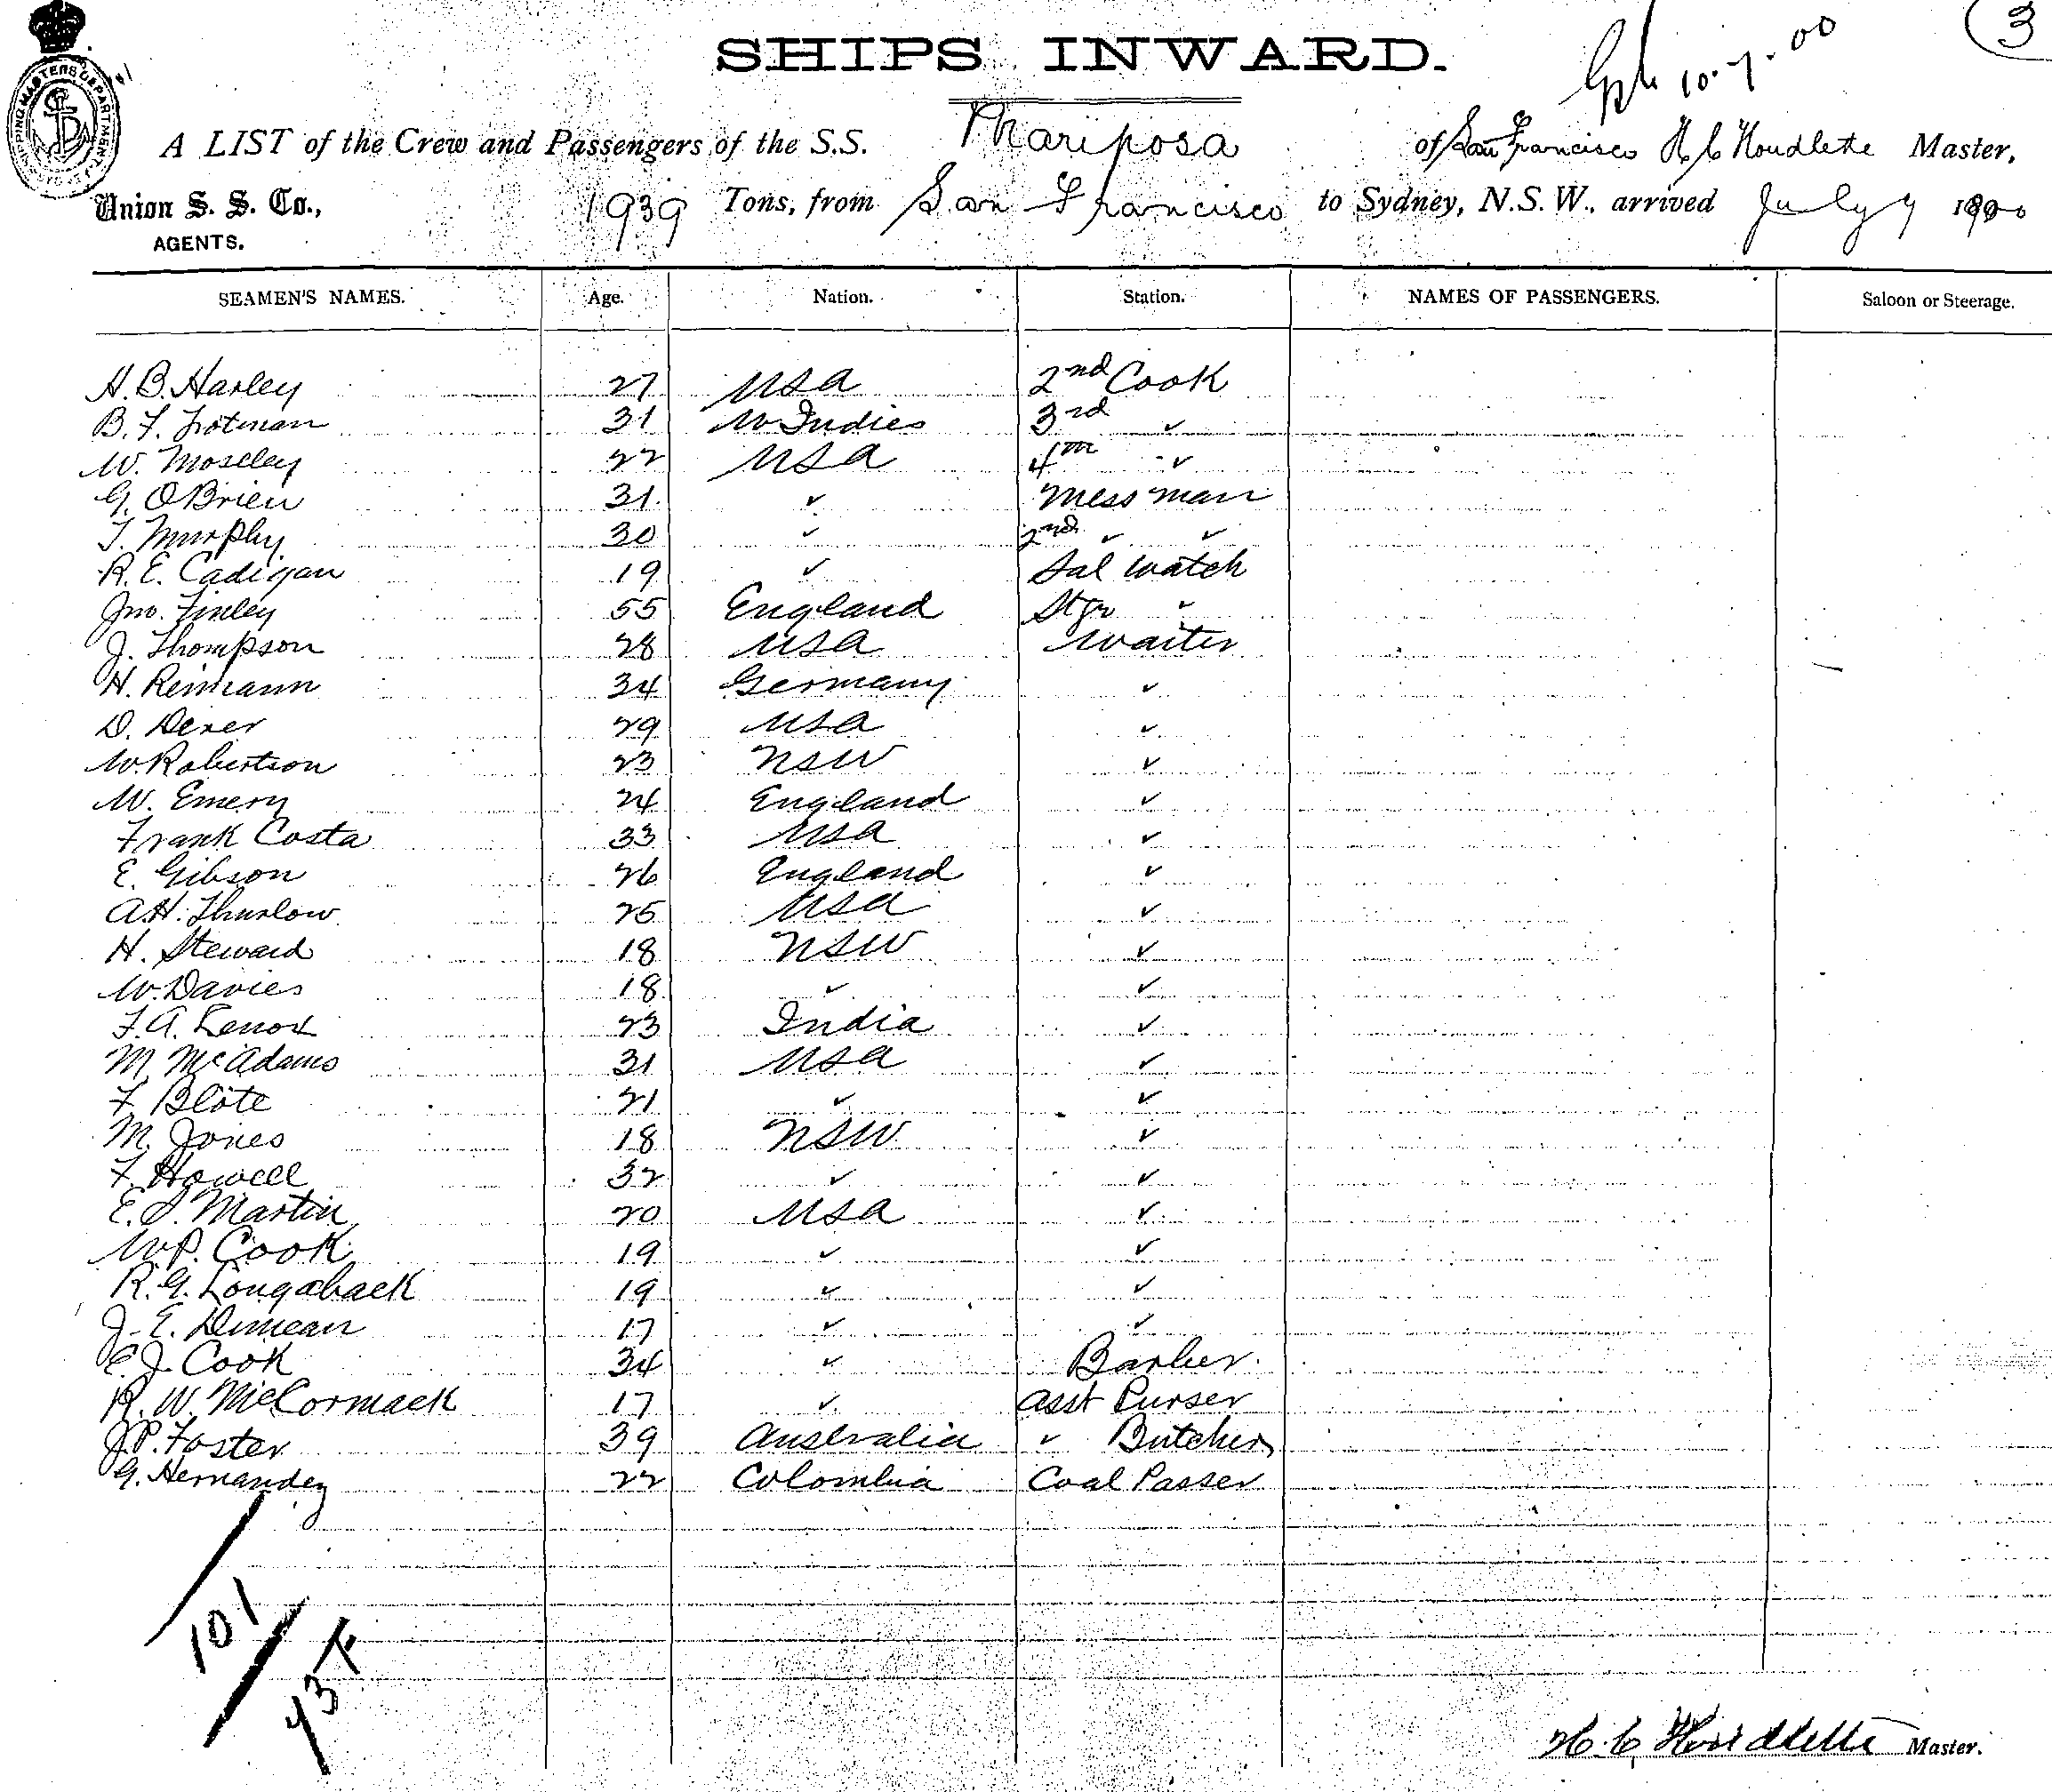 3
SHIPS INWARD.
10.7.00
A LIST of the Crew and Passengers of the S.S. Mariposa of San Francisco H C Houdlette Master,
Union S. S. Co., 1939 Tons, from San Francisco to Sydney, N.S.W., arrived July 9 1900
AGENTS.
SEAMEN'S NAMES. Age. Nation. Station. NAMES OF PASSENGERS. Saloon or Steerage.
H. B. Harley 27 USA 2nd Cook
B. F. Trotman 31 W Indies 3rd ✓
W. Moseley 22 USA 4th ✓
G. OBrien 31 ✓ Mess man
T. Murphy 30 ✓ 2nd ✓ ✓
R. E. Cadigan 19 ✓ Sal Watch
Jno. Finley 55 England Stge ✓
J. Thompson 28 USA Waiter
H. Reimann 34 Germany ✓
D. Dexer 29 USA ✓
W. Robertson 23 NSW ✓
W. Emery 24 England ✓
Frank Costa 33 USA ✓
E. Gibson 26 England ✓
A.H. Thurlow 25 USA ✓
H. Steward 18 NSW ✓
W. Davies 18 ✓ ✓
F. A. Lenox 23 India ✓
M. McAdams 31 USA ✓
F. Blote 21 ✓ ✓
M. Jones 18 NSW ✓
F. Howell 32 ✓ ✓
E. S. Martin 20 USA ✓
W. P. Cook 19 ✓ ✓
R. G. Longaback 19 ✓ ✓
J. E. Duncan 17 ✓ ✓
E. J. Cook 34 ✓ Barber
R. W. McCormack 17 ✓ Asst Purser
J. P. Foster 39 Australia ✓ Butcher
G. Hernandez 22 Colombia Coal Passer
101
H. C. Houdlette Master.